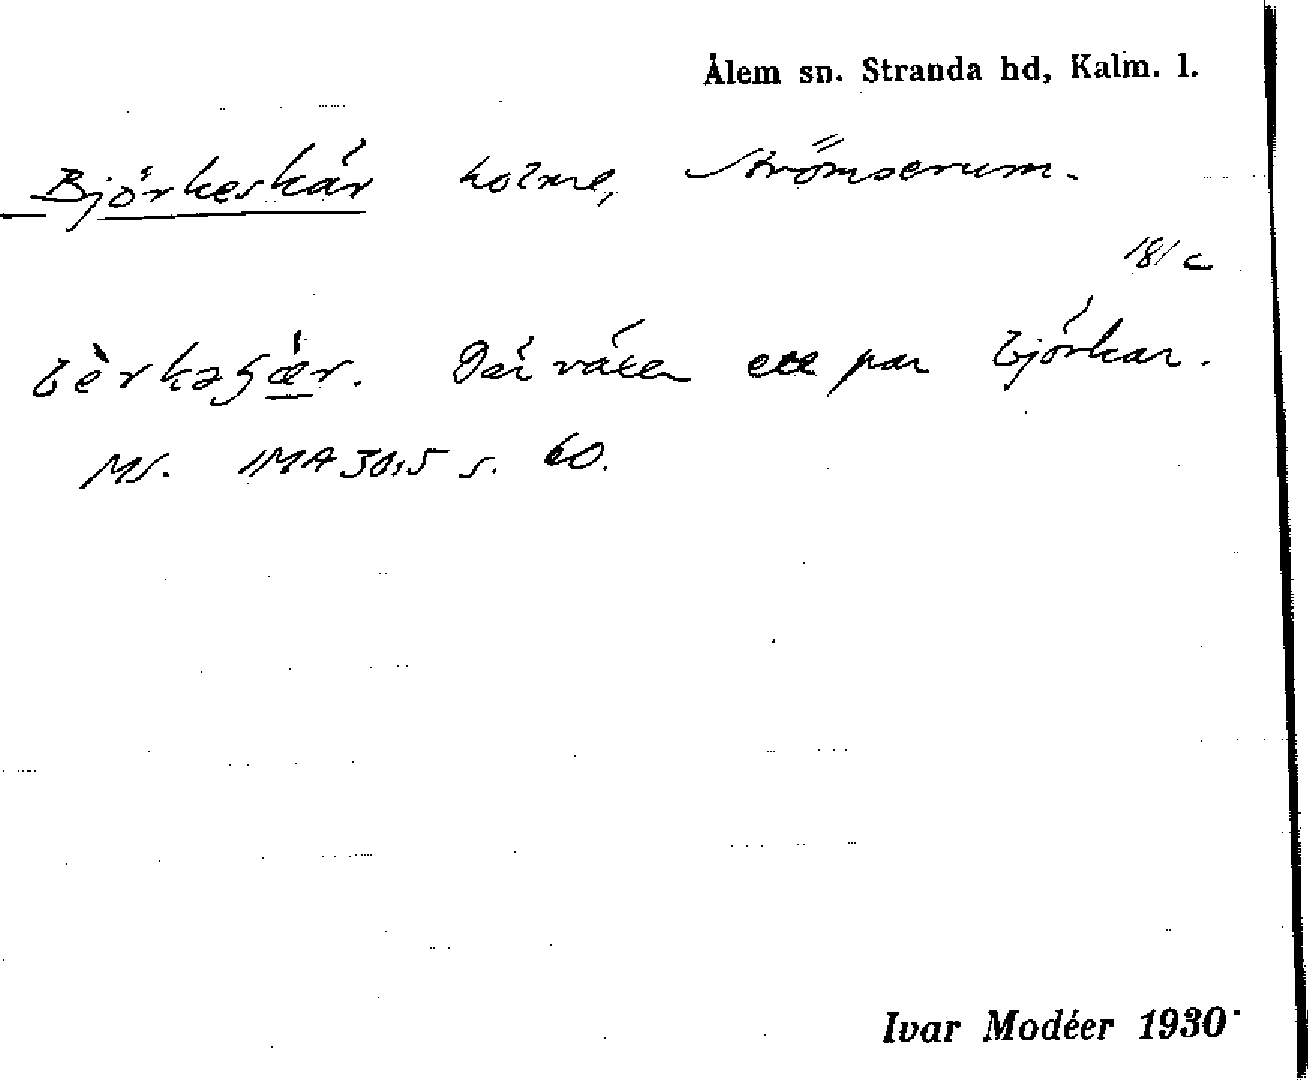 Ålem sn. Stranda hd, Kalm. l.
Björkeskär holme, Strömserum.
181 c
bèrkaʂæ̀r. Där växer ett par björkar.
Ms. IMA 30:5 s. 60.
Ivar Modéer 1930